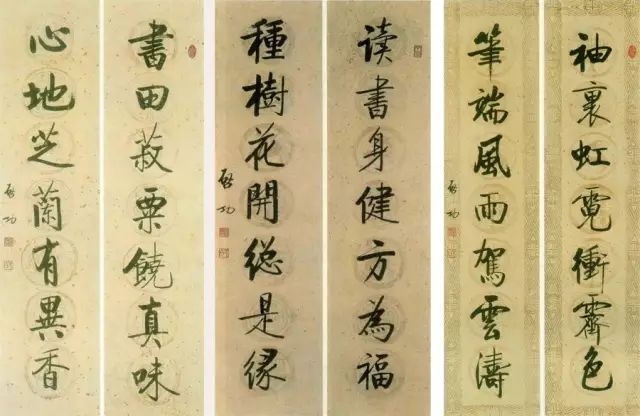 袖裏虹霓衝霽色
筆端風雨駕雲濤
啟功
读書身健方為福
種樹花開総是緣
啟功
書田菽粟饒真味
心地芝蘭有異香
啟功